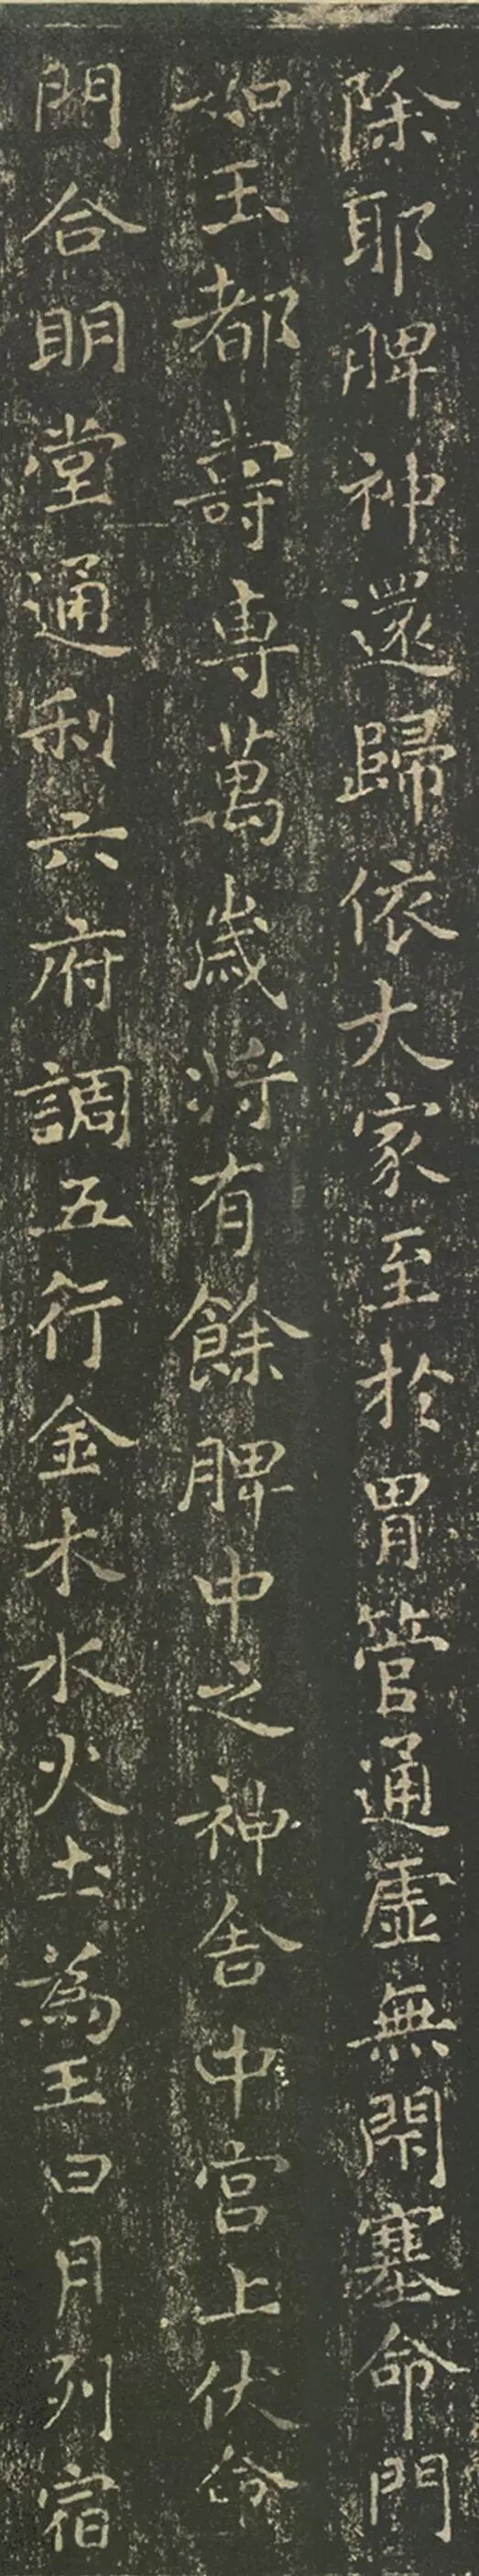 除耶脾神還歸依大家至於胃管通虛無閇塞命門
如玉都壽専萬歲将有餘脾中之神舍中宮上伏命
門合明堂通利六府調五行金木水火土為王日月列宿